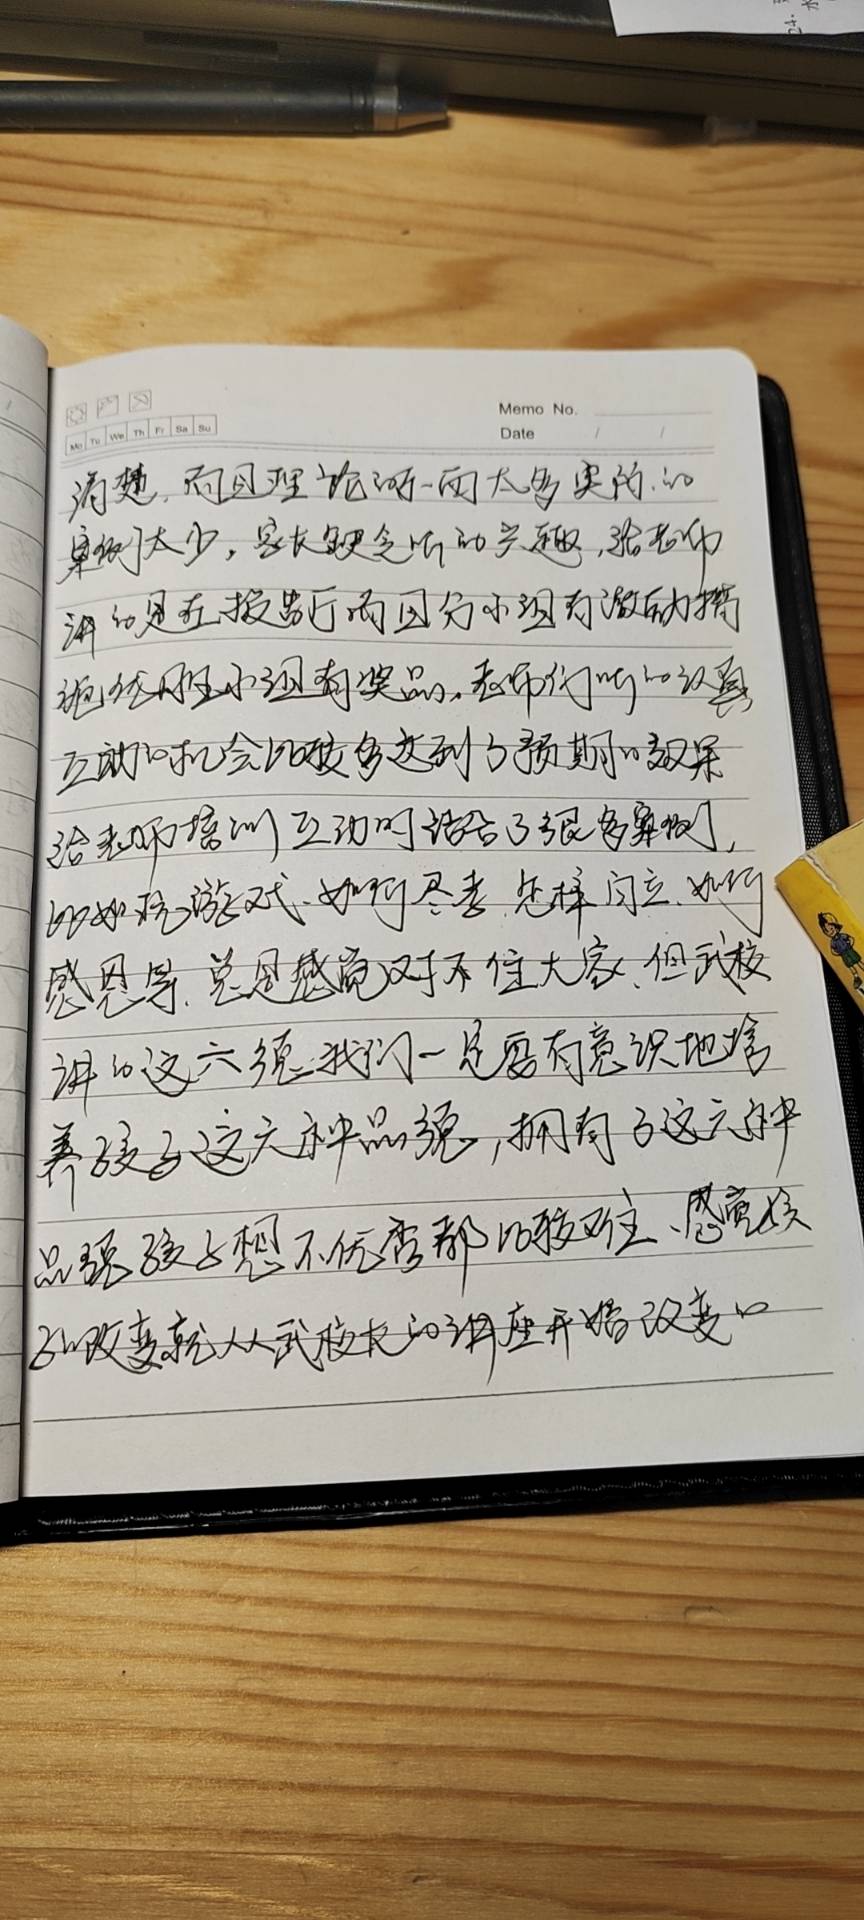 Memo No.
Mo Tu We Th Fr Sa Su
Date / /
清楚,而且理论那一面太多实际的
案例太少,家长缺乏听的兴趣,给老师
讲的是在报告厅而且分小组有激励措
施优胜小组有奖品。老师们听的认真
互动的机会比较多达到了预期的效果
给老师培训互动时结合了很多案例,
比如玩游戏、如何尽孝、怎样自立、如何
感恩等,总是感觉对不住大家、但武校
讲的这六颗我们一定要有意识地培
养孩子这六种品德,拥有了这六种
品德孩子想不优秀都比较难、感觉孩
子的改变就从武校长的讲座开始改变的
24.